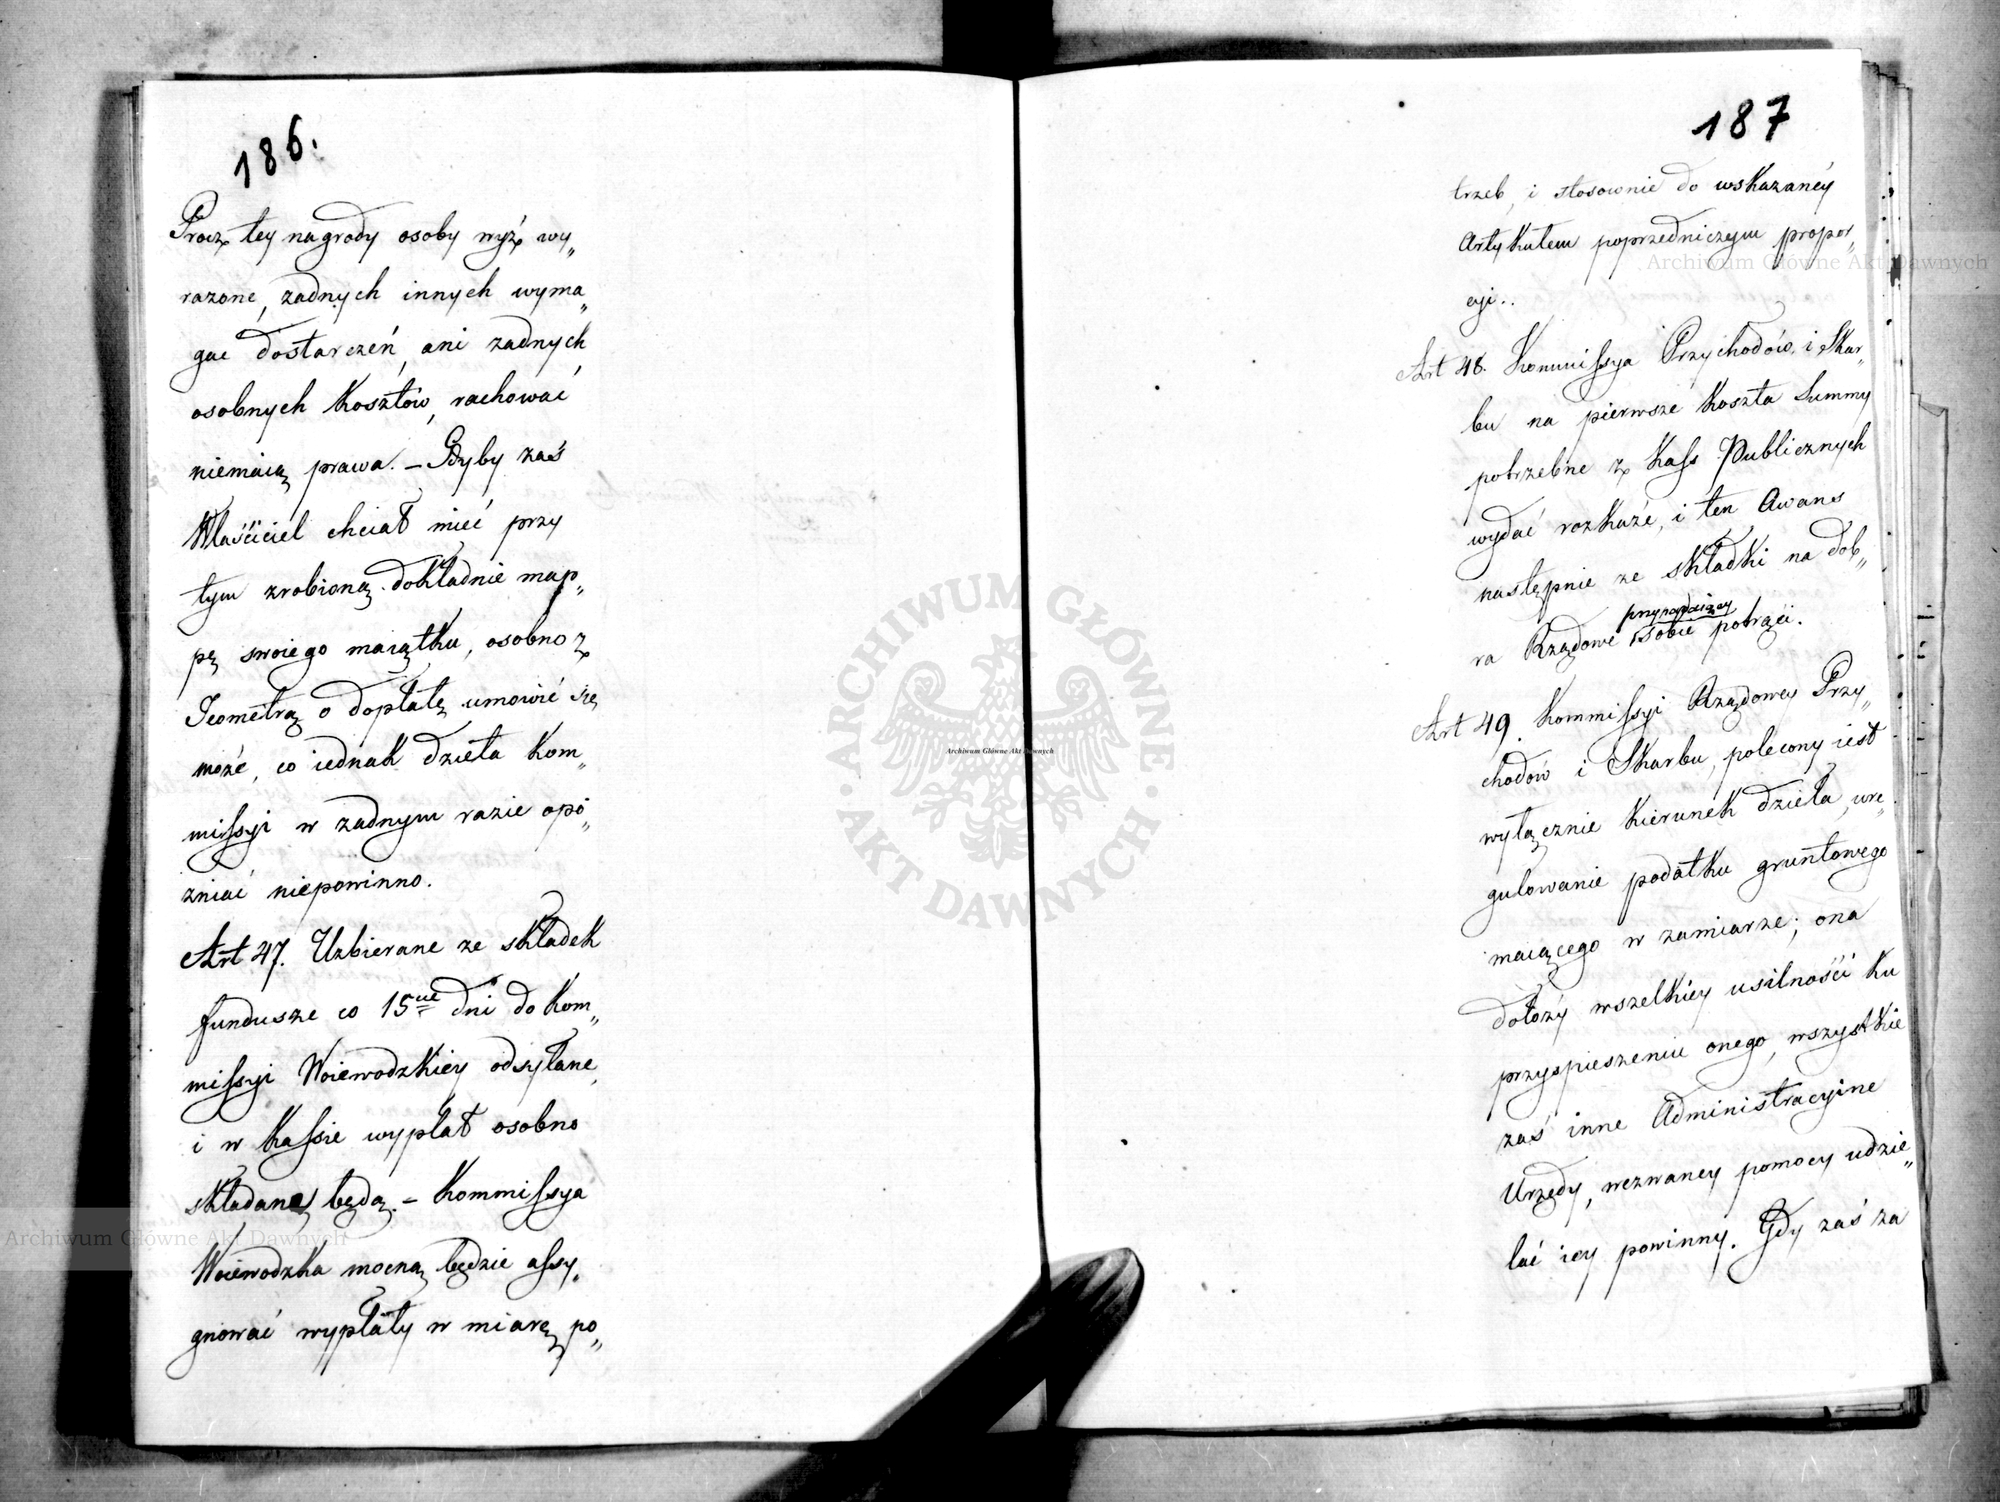 186.
Procz tey nagrody osoby wyż wy„
rażone, żadnych innych wyma„
gać dostarczeń, ani żadnych
osobnych Kosztów, rachować
niemaią prawa. – Gdyby zaś
Właściciel chciał mieć przy
tym zrobioną dokładnie map„
pę swoiego maiątku, osobno z
Jeometrą o dopłatę umowić się
może, co iednak dzieła Kom„
missyi w żadnym razie opó„
zniać niepowinno.
Art 47. Uzbierane ze składek
fundusze co 15cie dni do Kom„
missyi Woiewodzkiey odsyłane,
i w Kassie wypłat osobno
składane będą. – Kommissya
Woiewodzka mocną będzie assy„
gnować wypłaty w miarę po„
187
trzeb, i stosownie do wskazanéy
Artykułem poprzedniczym propor„
cyi..
Art 48. Kommissya Przychodów, i Skar„
bu na pierwsze Koszta Summy
potrzebne z Kass Publicznych
wydać rozkaże, i ten Awans
następnie ze składki na dob„
przypadaiącey
ra Rządowe sobie potrąci.
Art 49. Kommissyi Rządowey Przy„
chodów i Skarbu, polecony iest
wyłącznie Kierunek dzieła, ure„
gulowanie podatku gruntowego
maiącego w zamiarze; ona
dołoży wszelkiey usilności ku
przyspieszeniu onego, wszystkie
zaś inne Administracyine
Urzędy, wezwaney pomocy udzie„
lać iey powinny. Gdy zaś za
Archiwum Główne Akt Dawnych
Archiwum Główne Akt Dawnych
Archiwum Główne Akt Dawnych
ARCHIWUM GŁÓWNE AKT DAWNYCH